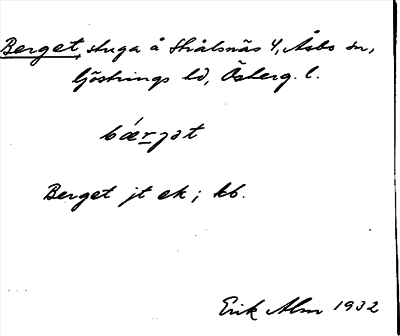 Berget, stuga å Strålsnäs 4, Åsbo sn,
Göstrings hd, Österg. l.
bǽrjat
Berget jt ek; kb.
Erik Alm 1932